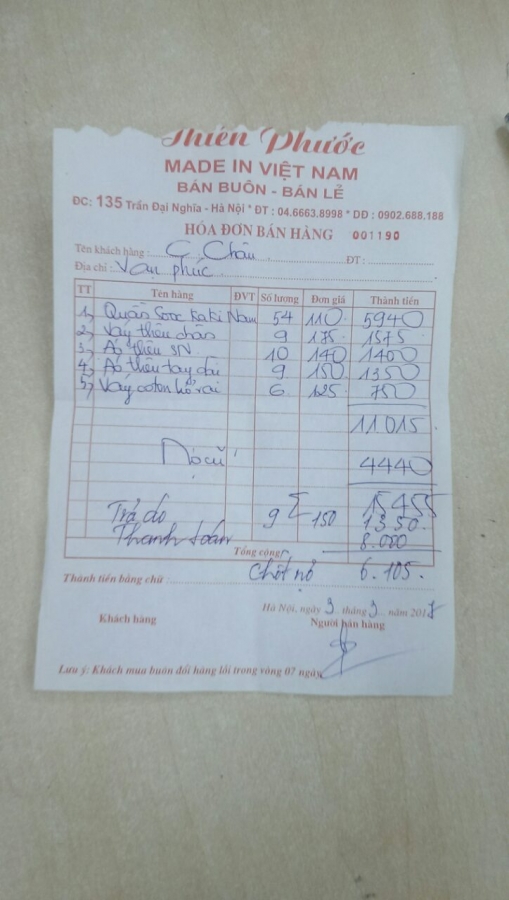 Thiên Phước
MADE IN VIỆT NAM
BÁN BUÔN - BÁN LẺ
ĐC: 135 Trần Đại Nghĩa - Hà Nội * ĐT : 04.6663.8998 * DĐ : 0902.688.188
HÓA ĐƠN BÁN HÀNG 001190
Tên khách hàng : C Châu ĐT :
Địa chỉ : Vạn phúc
TT Tên hàng ĐVT Số lượng Đơn giá Thành tiền
1, Quần Sooc kaki Nam 54 110 5940
2, Váy thêu 9 175 1575
3, Áo thêu SN 10 140 1400
4, Áo thêu tay dài 9 150 1350
5, Váy coton hở vai 6 125 750
11015
Nợ cũ 4440
Σ 15455
Trả do 9 150 1350
Thanh toán 8.000
Tổng cộng
Chốt nợ 6.105
Thành tiền bằng chữ :
Hà Nội, ngày 3 tháng 3 năm 2017
Khách hàng Người bán hàng
Lưu ý: Khách mua buôn đổi hàng lỗi trong vòng 07 ngày